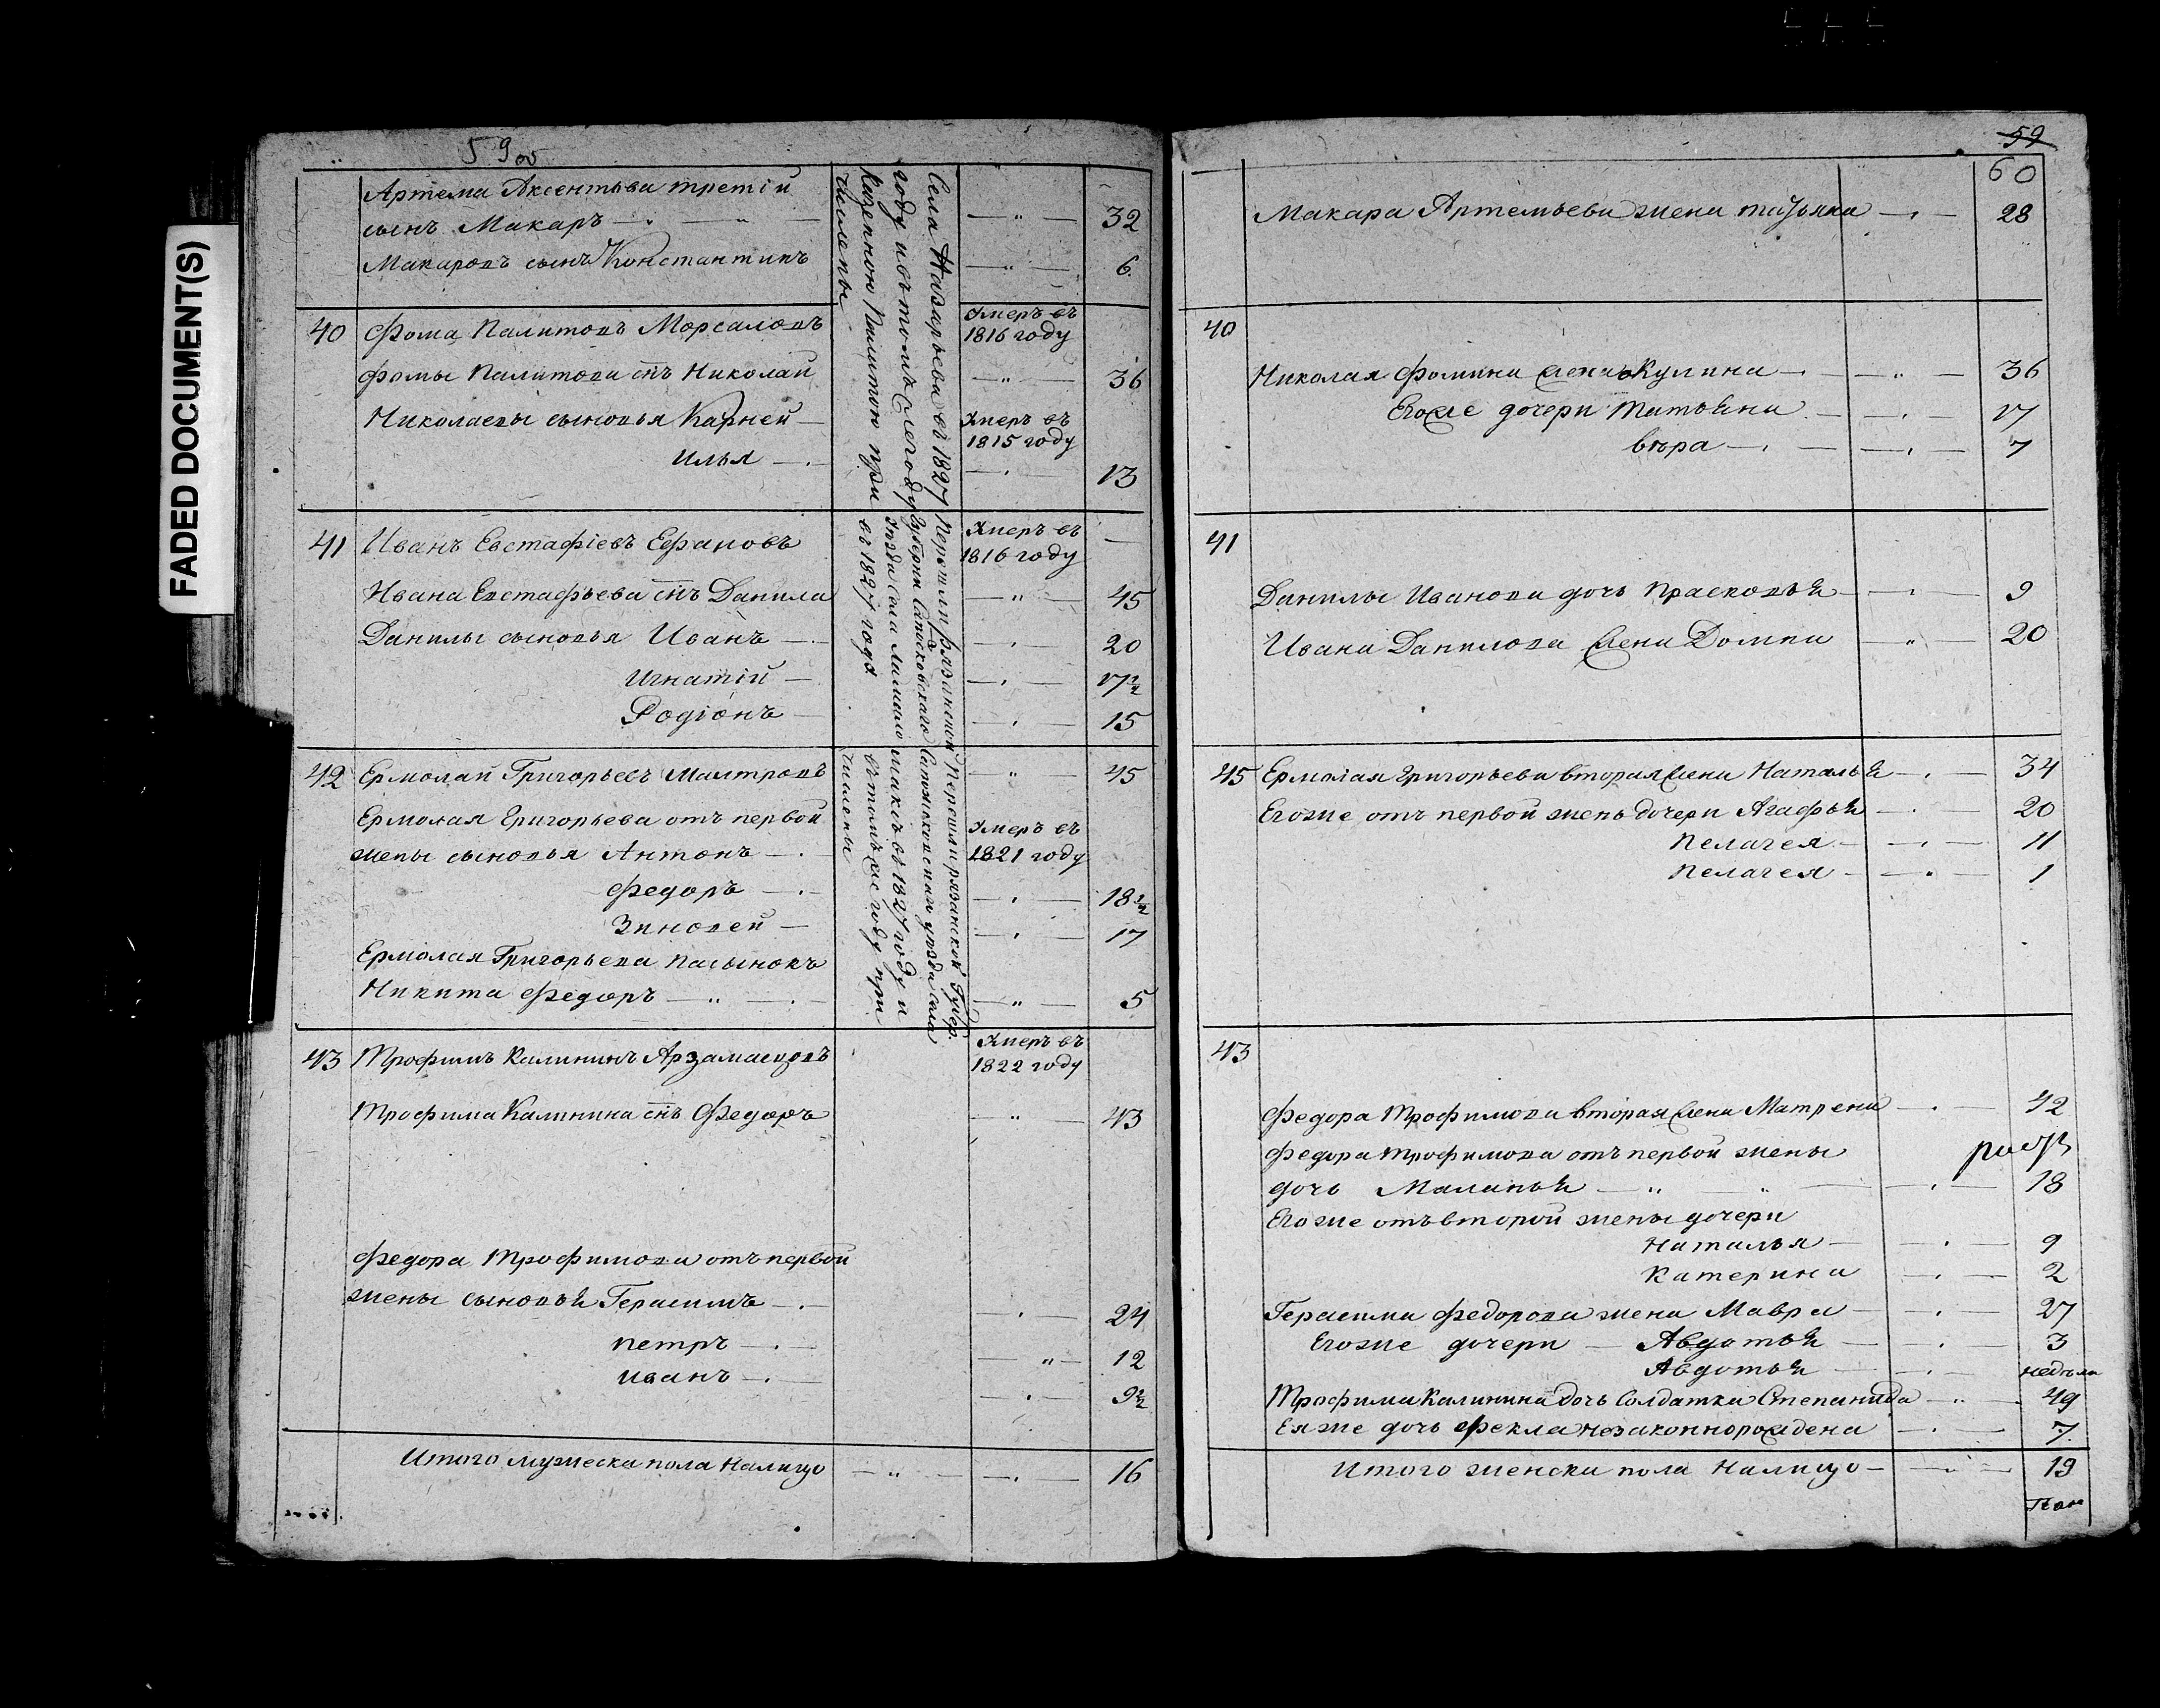 FADED DOCUMENT(S)
59об
Артема Аксентьева третій
сынъ Макаръ 32
Макаровъ сынъ Константинъ 6
40 Фома Палитовъ Морсаловъ Умеръ въ
1816 году
Фомы Палитова снъ Николай 36
Николаевы сыновья Карней Умеръ въ
1815 году
Илья 13
41 Иванъ Евстафіевъ Ефановъ Умеръ въ
1816 году
Ивана Евстафьева снъ Данила 45
Данилы сыновья Иванъ 20
Игнатій 17½
Родіонъ 15
42 Ермолай Григорьевъ Малтровъ 45
Ермолая Григорьева отъ первой Умеръ въ
жены сыновья Антонъ 1821 году
Федоръ 18½
Зиновей 17
Ермолая Григорьева пасынокъ
Никита Федоръ 5
43 Трофимъ Калининъ Арзамасцовъ Умеръ въ
1822 году
Трофима Калинина снъ Федоръ 43
Федора Трофимова отъ первой
жены сыновья Герасимъ 24
Петръ 12
Иванъ 9½
Итого мужеска пола налицо 16
Села Назарьева въ 1827
году и въ томъ же году
казенною палатою при
числены
Перешли рязанской
губерни
уезда села
въ 1827 годе
Перешли рязанской Губер.
уезда села
въ 1827 году и
въ томъ же году при
числены
59
60
Макара Артемьева жена татьяна 28
40
Николая Фомина жена Акулина 36
Егоже дочери Татьяна 17
Вѣра 7
41
Данилы Иванова дочь Прасковья 9
Ивана Данилова жена Домна 20
45 Ермолая Григорьева вторая жена Наталья 34
Егоже отъ первой жены дочери Агафья 20
Пелагея 11
Пелагея 1
43
Федора Трофимова вторая жена Матрена 42
Федора Трофимова отъ первой жены
дочь Маланья 18
Егоже отъ второй жены дочери
Наталья 9
Катерина 2
Герасима Федорова жена Мавра 27
Егоже дочери Авдотья 3
Авдотья недѣля
Трофима Калинина дочь Солдатка Степанида 49
Еяже дочь Фекла незаконнорождена 7
Итого женска пола налицо 19